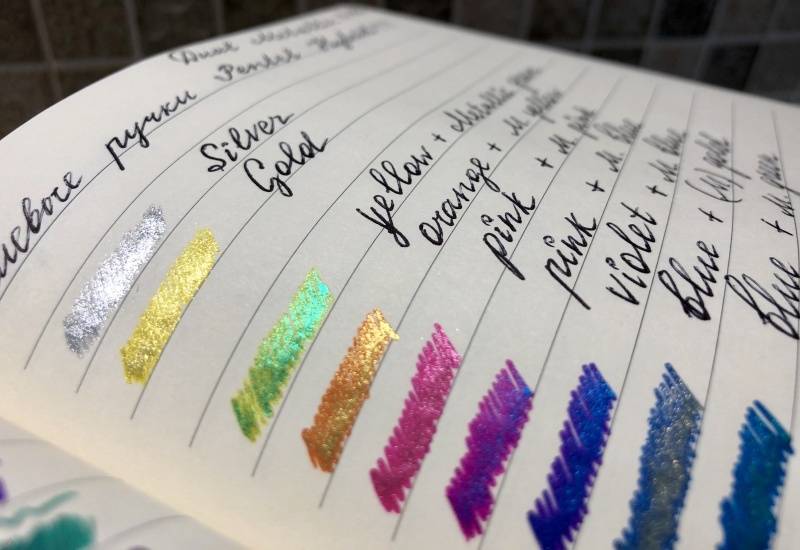 Dual Metallic
ручки Pentel Hybrid
Silver
Gold
yellow + Metallic green
orange + M yellow
pink + M pink
pink + M blue
violet + M blue
blue + (M) gold
blue + M green